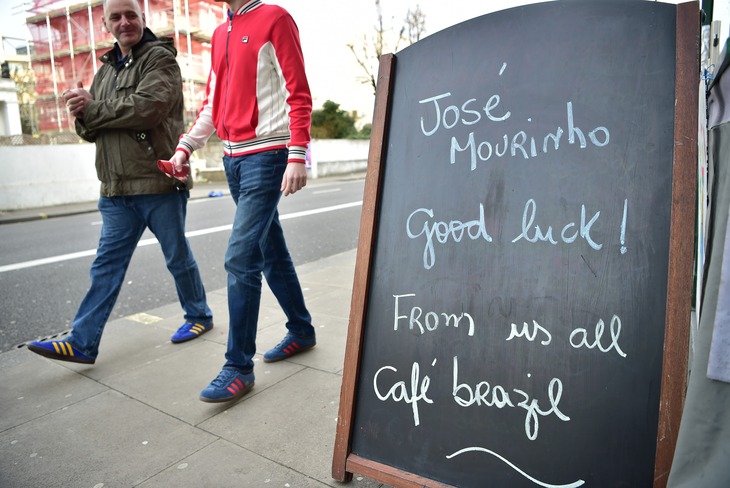 José
Mourinho
Good luck !
From us all
Café brazil